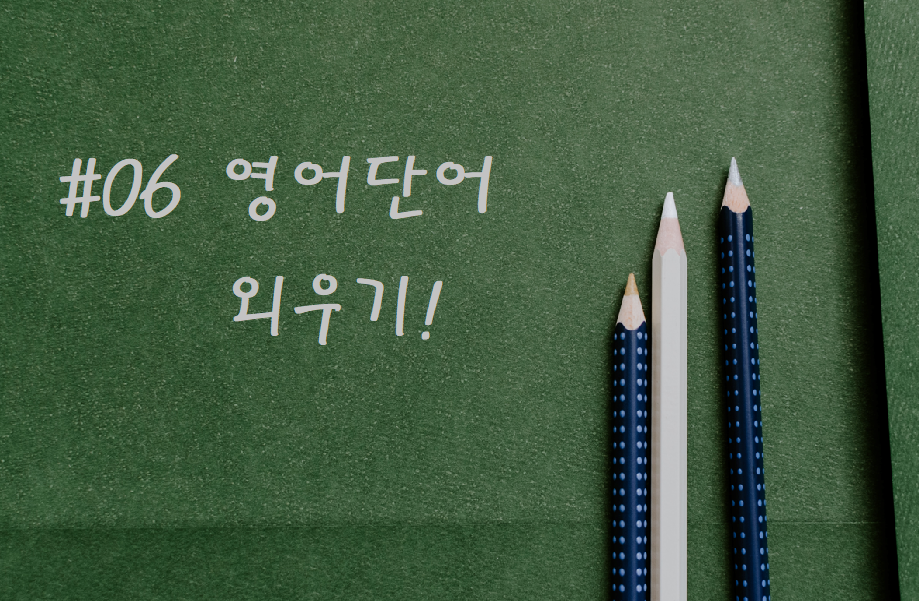 #06 영어단어
외우기!